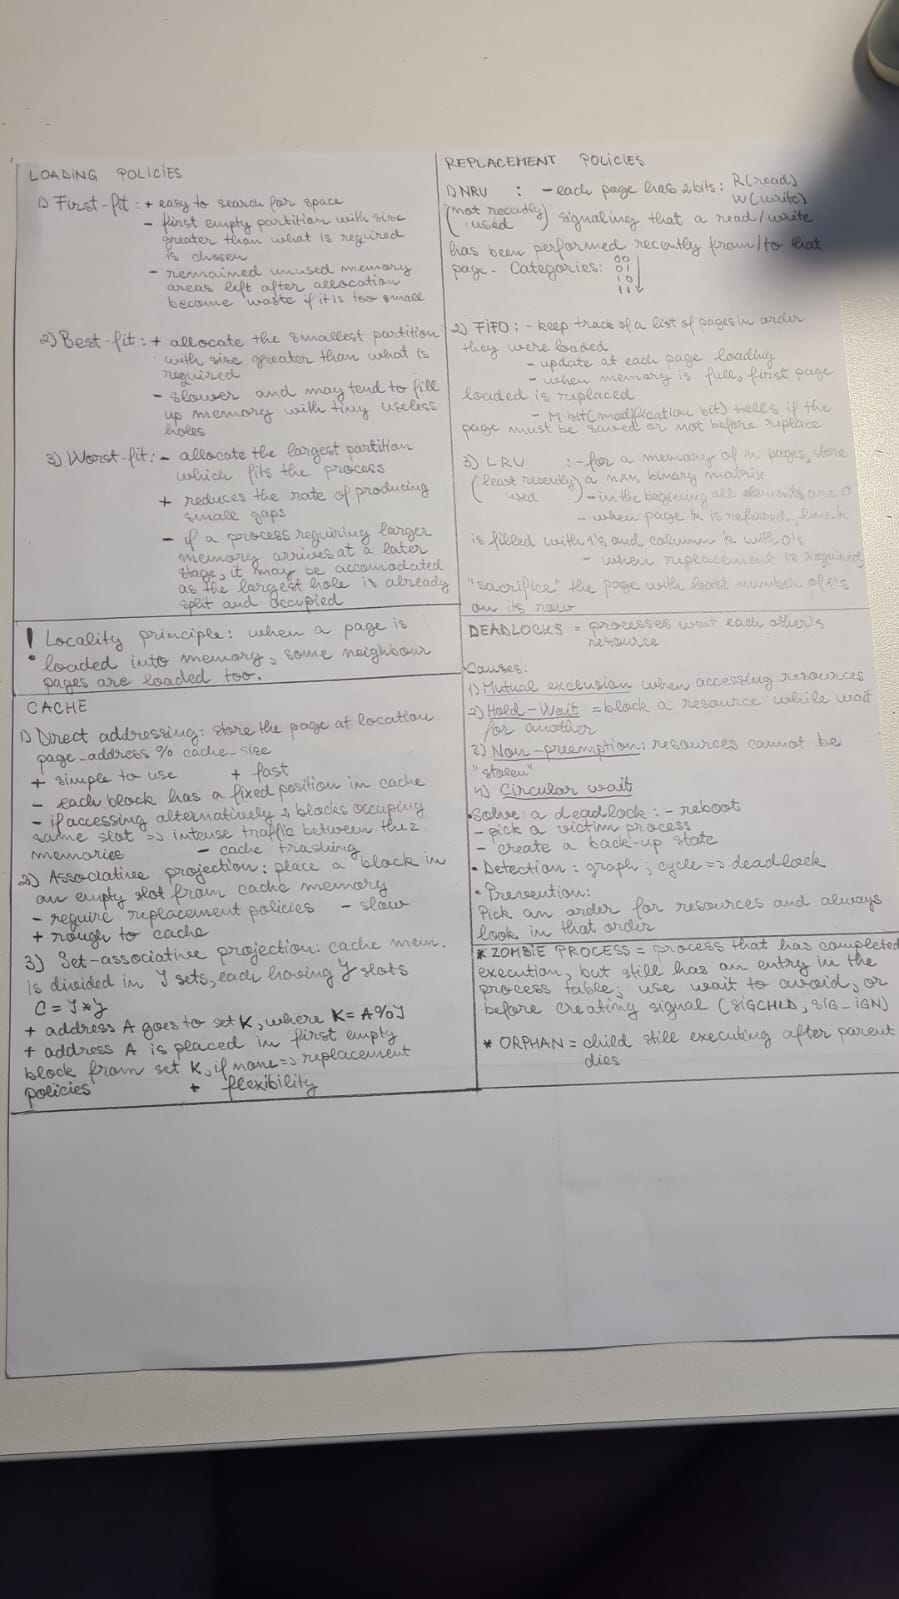 LOADING POLICIES
1) First-fit: + easy to search for space
- first empty partition with size
greater than what is required
is chosen
- remained unused memory
areas left after allocation
become waste if it is too small
2) Best-fit: + allocate the smallest partition
with size greater than what is
required
- slower and may tend to fill
up memory with tiny useless
holes
3) Worst-fit: - allocate the largest partition
which fits the process
+ reduces the rate of producing
small gaps
- if a process requiring larger
memory arrives at a later
stage, it may be accomodated
as the largest hole is already
split and occupied
! Locality principle: when a page is
loaded into memory, some neighbour
pages are loaded too.
CACHE
1) Direct addressing: store the page at location
page_address % cache_size
+ simple to use + fast
- each block has a fixed position in cache
- if accessing alternatively 2 blocks occuping
same slot => intense traffic between the 2
memories - cache trashing
2) Associative projection: place a block in
an empty slot from cache memory
- require replacement policies - slow
+ rough to cache
3) Set-associative projection: cache mem.
is divided in I sets, each having J slots
C = I * J
+ address A goes to set K, where K = A % I
+ address A is placed in first empty
block from set K, if none => replacement
policies + flexibility
REPLACEMENT POLICIES
1) NRU : - each page has 2 bits: R(read)
W(write)
(not recently used) signaling that a read/write
has been performed recently from/to that
page. Categories: 00
01
10
11
2) FIFO: - keep track of a list of pages in order
they were loaded
- update at each page loading
- when memory is full, first page
loaded is replaced
- M bit (modification bit) tells if the
page must be saved or not before replace
3) LRU : - for a memory of n pages, store
(least recently used) a nxn binary matrix
- in the beginning all elements are 0
- when page k is referred, line k
is filled with 1's and column k with 0's
- when replacement is required,
"sacrifice" the page with least number of 1's
on its row
DEADLOCKS = processes wait each other's
resource
Causes:
1) Mutual exclusion when accessing resources
2) Hold-Wait = block a resource while wait
for another
3) Non-preemption: resources cannot be
"stolen"
4) Circular wait
• Solve a deadlock: - reboot
- pick a victim process
- create a back-up state
• Detection: graph; cycle => deadlock
• Prevention:
Pick an order for resources and always
lock in that order
* ZOMBIE PROCESS = process that has completed
execution, but still has an entry in the
process table; use wait to avoid, or
before creating signal (SIGCHLD, SIG_IGN)
* ORPHAN = child still executing after parent
dies